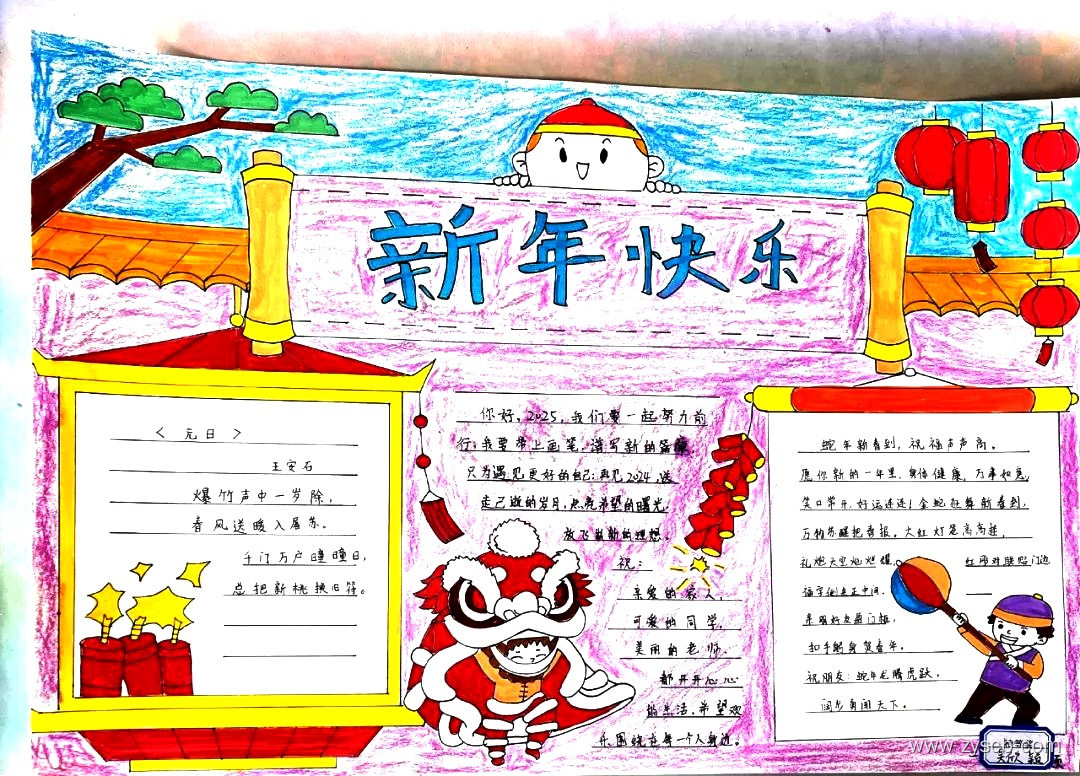 新年快乐
<元日>
王安石
爆竹声中一岁除,
春风送暖入屠苏。
千门万户曈曈日,
总把新桃换旧符。
你好,2025,我们要一起努力前
行;我要带上画笔,谱写新的篇章
只为遇见更好的自己;再见2024,送
走已逝的岁月,点亮希望的曙光,
放飞崭新的理想。
祝:
亲爱的家人,
可爱的同学,
美丽的老师.
都开开心心
的生活,希望欢
乐围绕在每一个人身边。
蛇年新春到,祝福声声高。
愿你新的一年里,身体健康,万事如意,
笑口常开,好运连连!金蛇狂舞新春到,
万物苏醒把春报。大红灯笼高高挂,
礼炮天空灿烂爆。
红彤对联贴门边
福字倒来正中间.
亲朋好友盈门槛,
和手躬身贺春年。
祝朋友:蛇年龙腾虎跃,
阔步勇闯天下。
www.zyseb.com